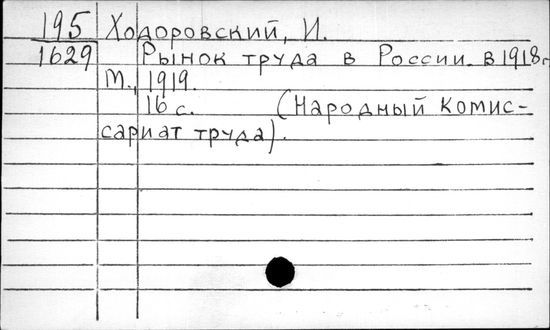 195 Ходоровский, И.
1629 Рынок труда в России в 1918 г.
М., 1919.
16 с. (Народный комис-
сариат труда).